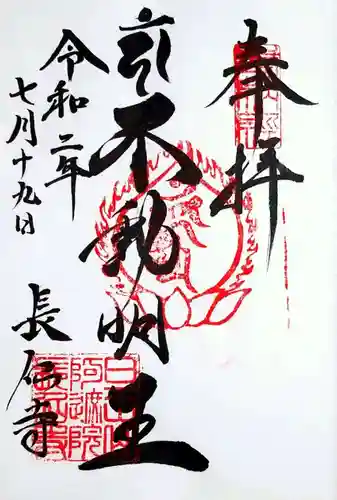 奉拝
不動明王
令和二年
七月十九日
長仙寺